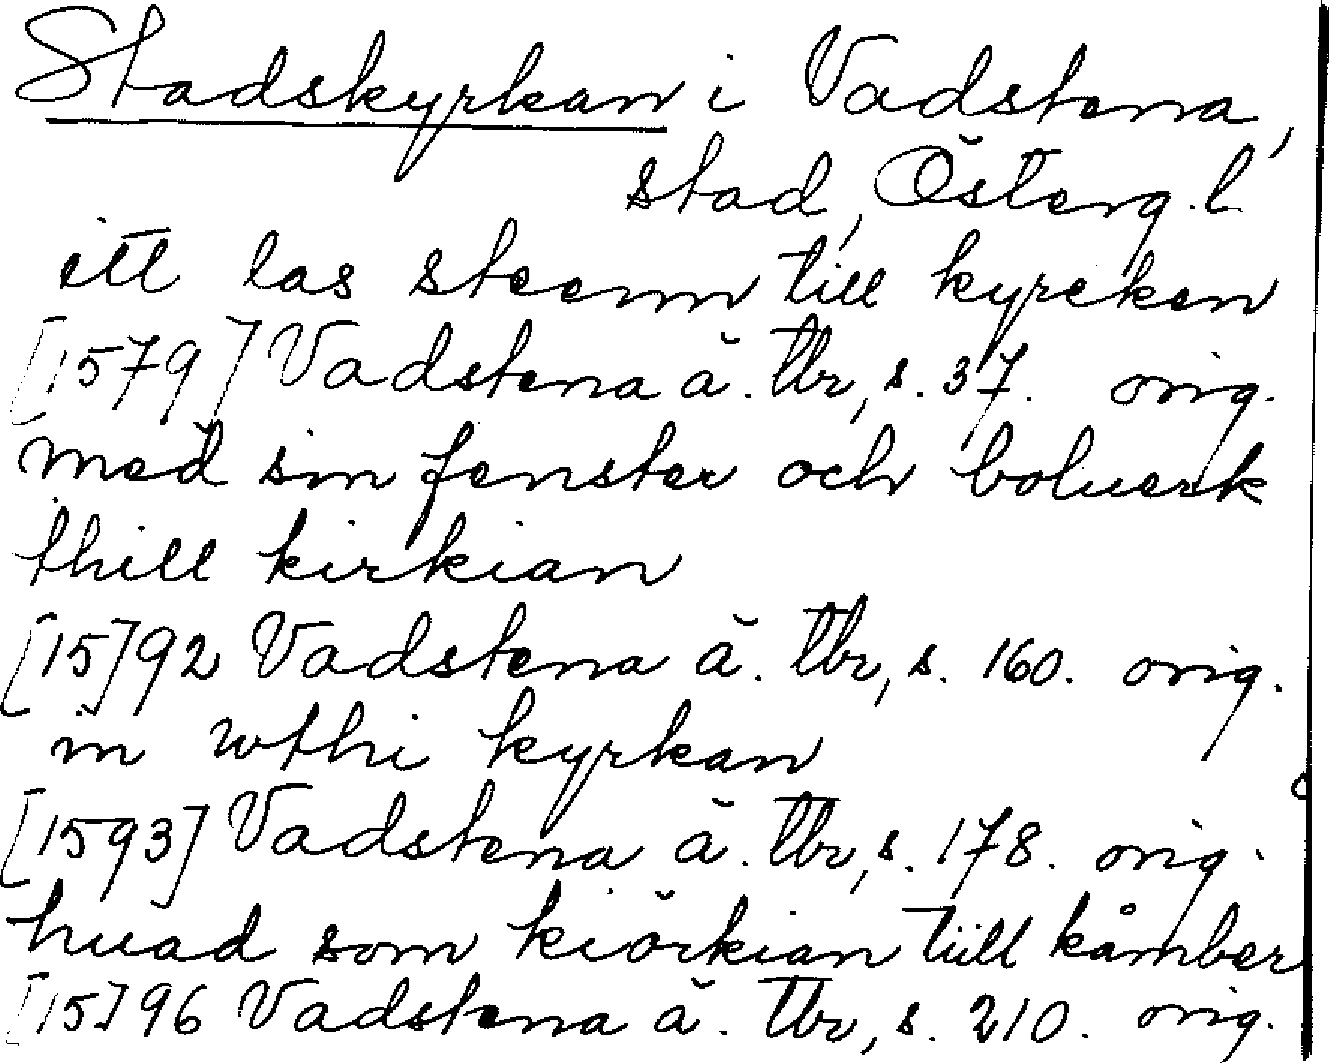 Stadskyrkan i Vadstena,
stad, Österg. l.
itt las steenn till kyreken
[1579] Vadstena ä. tbr, s. 37. orig.
med sin fenster och boluerk
thill kirkian
[15]92 Vadstena ä. tbr, s. 160. orig.
in wthi kyrkan
[1593] Vadstena ä. tbr, s. 178. orig.
huad som kiörkian tiill kåmber
[15]96 Vadstena ä. tbr, s. 210. orig.